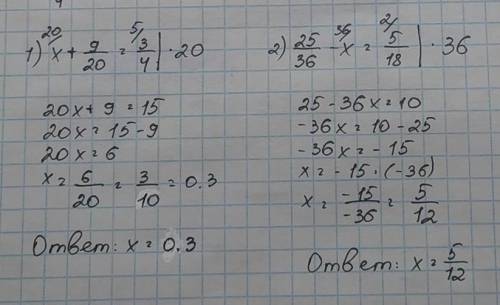 1) 20/ x + 9/20 = 5/ 3/4 | · 20
20x + 9 = 15
20x = 15 - 9
20x = 6
x = 6/20 = 3/10 = 0.3
Ответ: x = 0.3
2) 25/36 - 36/ x = 2/ 5/18 | · 36
25 - 36x = 10
-36x = 10 - 25
-36x = -15
x = -15 : (-36)
x = -15/-36 = 5/12
Ответ: x = 5/12